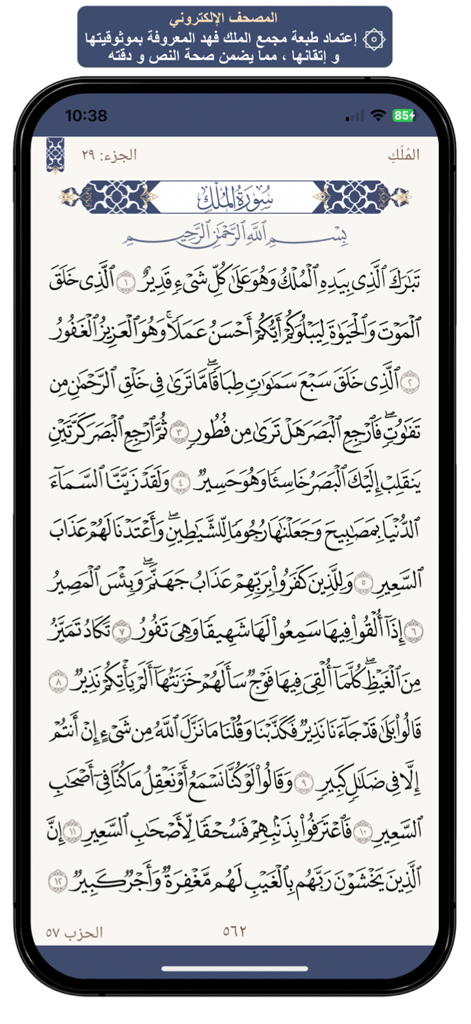 المصحف الإلكتروني
إعتماد طبعة مجمع الملك فهد المعروفة بموثوقيتها
و إتقانها ، مما يضمن صحة النص و دقته
10:38
85
المُلْكِ
الجزء: ٢٩
سُورَةُ المُلْكِ
بِسْمِ ٱللَّهِ ٱلرَّحْمَٰنِ ٱلرَّحِيمِ
تَبَٰرَكَ ٱلَّذِى بِيَدِهِ ٱلْمُلْكُ وَهُوَ عَلَىٰ كُلِّ شَىْءٍ قَدِيرٌ ١ ٱلَّذِى خَلَقَ
ٱلْمَوْتَ وَٱلْحَيَوٰةَ لِيَبْلُوَكُمْ أَيُّكُمْ أَحْسَنُ عَمَلًا ۚ وَهُوَ ٱلْعَزِيزُ ٱلْغَفُورُ
٢ ٱلَّذِى خَلَقَ سَبْعَ سَمَٰوَٰتٍ طِبَاقًا ۖ مَّا تَرَىٰ فِى خَلْقِ ٱلرَّحْمَٰنِ مِن
تَفَٰوُتٍ ۖ فَٱرْجِعِ ٱلْبَصَرَ هَلْ تَرَىٰ مِن فُطُورٍ ٣ ثُمَّ ٱرْجِعِ ٱلْبَصَرَ كَرَّتَيْنِ
يَنقَلِبْ إِلَيْكَ ٱلْبَصَرُ خَاسِئًا وَهُوَ حَسِيرٌ ٤ وَلَقَدْ زَيَّنَّا ٱلسَّمَآءَ
ٱلدُّنْيَا بِمَصَٰبِيحَ وَجَعَلْنَٰهَا رُجُومًا لِّلشَّيَٰطِينِ ۖ وَأَعْتَدْنَا لَهُمْ عَذَابَ
ٱلسَّعِيرِ ٥ وَلِلَّذِينَ كَفَرُوا۟ بِرَبِّهِمْ عَذَابُ جَهَنَّمَ ۖ وَبِئْسَ ٱلْمَصِيرُ
٦ إِذَآ أُلْقُوا۟ فِيهَا سَمِعُوا۟ لَهَا شَهِيقًا وَهِىَ تَفُورُ ٧ تَكَادُ تَمَيَّزُ
مِنَ ٱلْغَيْظِ ۖ كُلَّمَآ أُلْقِىَ فِيهَا فَوْجٌ سَأَلَهُمْ خَزَنَتُهَآ أَلَمْ يَأْتِكُمْ نَذِيرٌ ٨
قَالُوا۟ بَلَىٰ قَدْ جَآءَنَا نَذِيرٌ فَكَذَّبْنَا وَقُلْنَا مَا نَزَّلَ ٱللَّهُ مِن شَىْءٍ إِنْ أَنتُمْ
إِلَّا فِى ضَلَٰلٍ كَبِيرٍ ٩ وَقَالُوا۟ لَوْ كُنَّا نَسْمَعُ أَوْ نَعْقِلُ مَا كُنَّا فِىٓ أَصْحَٰبِ
ٱلسَّعِيرِ ١٠ فَٱعْتَرَفُوا۟ بِذَنۢبِهِمْ فَسُحْقًا لِّأَصْحَٰبِ ٱلسَّعِيرِ ١١ إِنَّ
ٱلَّذِينَ يَخْشَوْنَ رَبَّهُم بِٱلْغَيْبِ لَهُم مَّغْفِرَةٌ وَأَجْرٌ كَبِيرٌ ١٢
٥٦٢
الحزب ٥٧